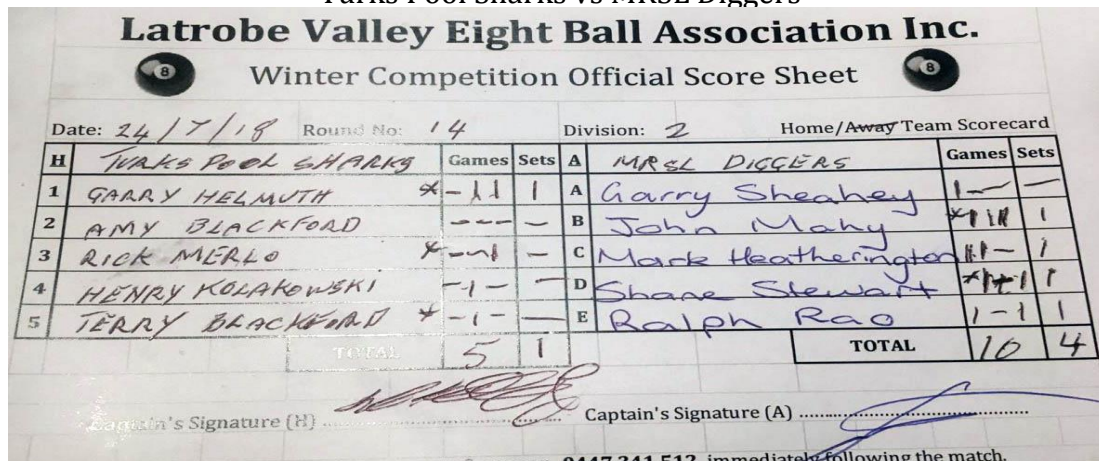 Turks Pool Sharks vs MRSL Diggers
Latrobe Valley Eight Ball Association Inc.
8 Winter Competition Official Score Sheet 8
Date: 24/7/18 Round No: 14 Division: 2 Home/Away Team Scorecard
H TURKS POOL SHARKS Games Sets A MRSL DIGGERS Games Sets
1 GARRY HELMUTH * - 1 1 1 A Garry Sheahey 1 - - -
2 AMY BLACKFORD - - - - B John Mahy * 1 1 1 1
3 RICK MERLO * - - 1 - C Mark Heatherington 1 1 - 1
4 HENRY KOLAKOWSKI - 1 - - D Shane Stewart * 1 1 1
5 TERRY BLACKFORD * - 1 - - E Ralph Rao 1 - 1 1
TOTAL 5 1 TOTAL 10 4
Captain's Signature (H) Captain's Signature (A)
0447 341 512 immediately following the match.